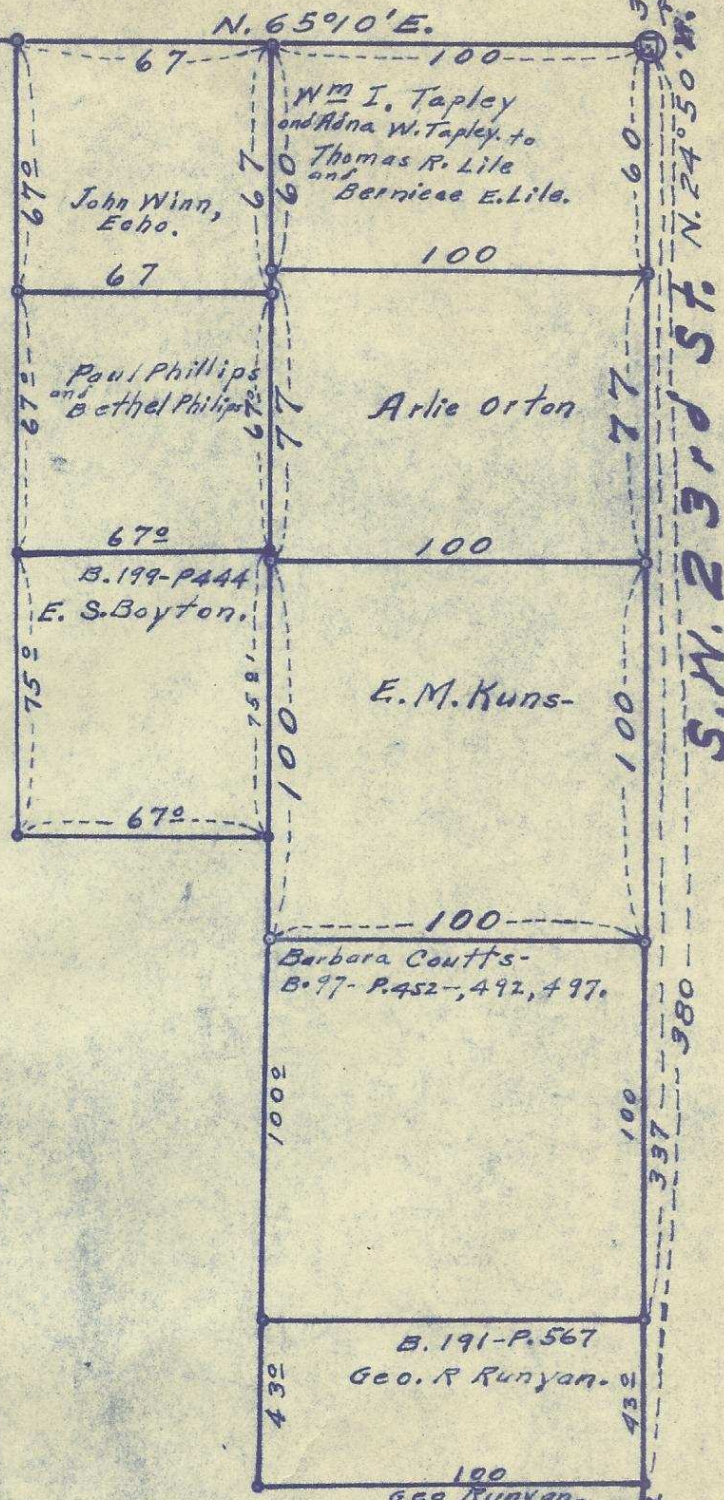 N. 65°10'E.
67
100
Wm I. Tapley
and Adna W. Tapley. to
Thomas R. Lile
and
Berniece E. Lile.
67º
67
60
60
John Winn,
Echo.
67
100
Paul Phillips
and
Bethel Philips
67º
67º
77
Arlie Orton
77
67º
100
B. 199-P444
E. S. Boyton.
75º
75º'
100
E. M. Kuns-
100
67º
100
Barbara Coutts-
B. 97- P. 452-, 492, 497.
100º
100
B. 191-P. 567
Geo. R Runyan.
43º
43º
100
Geo Runyan.
N. 24°50'W.
S. W. 23rd St.
380
337